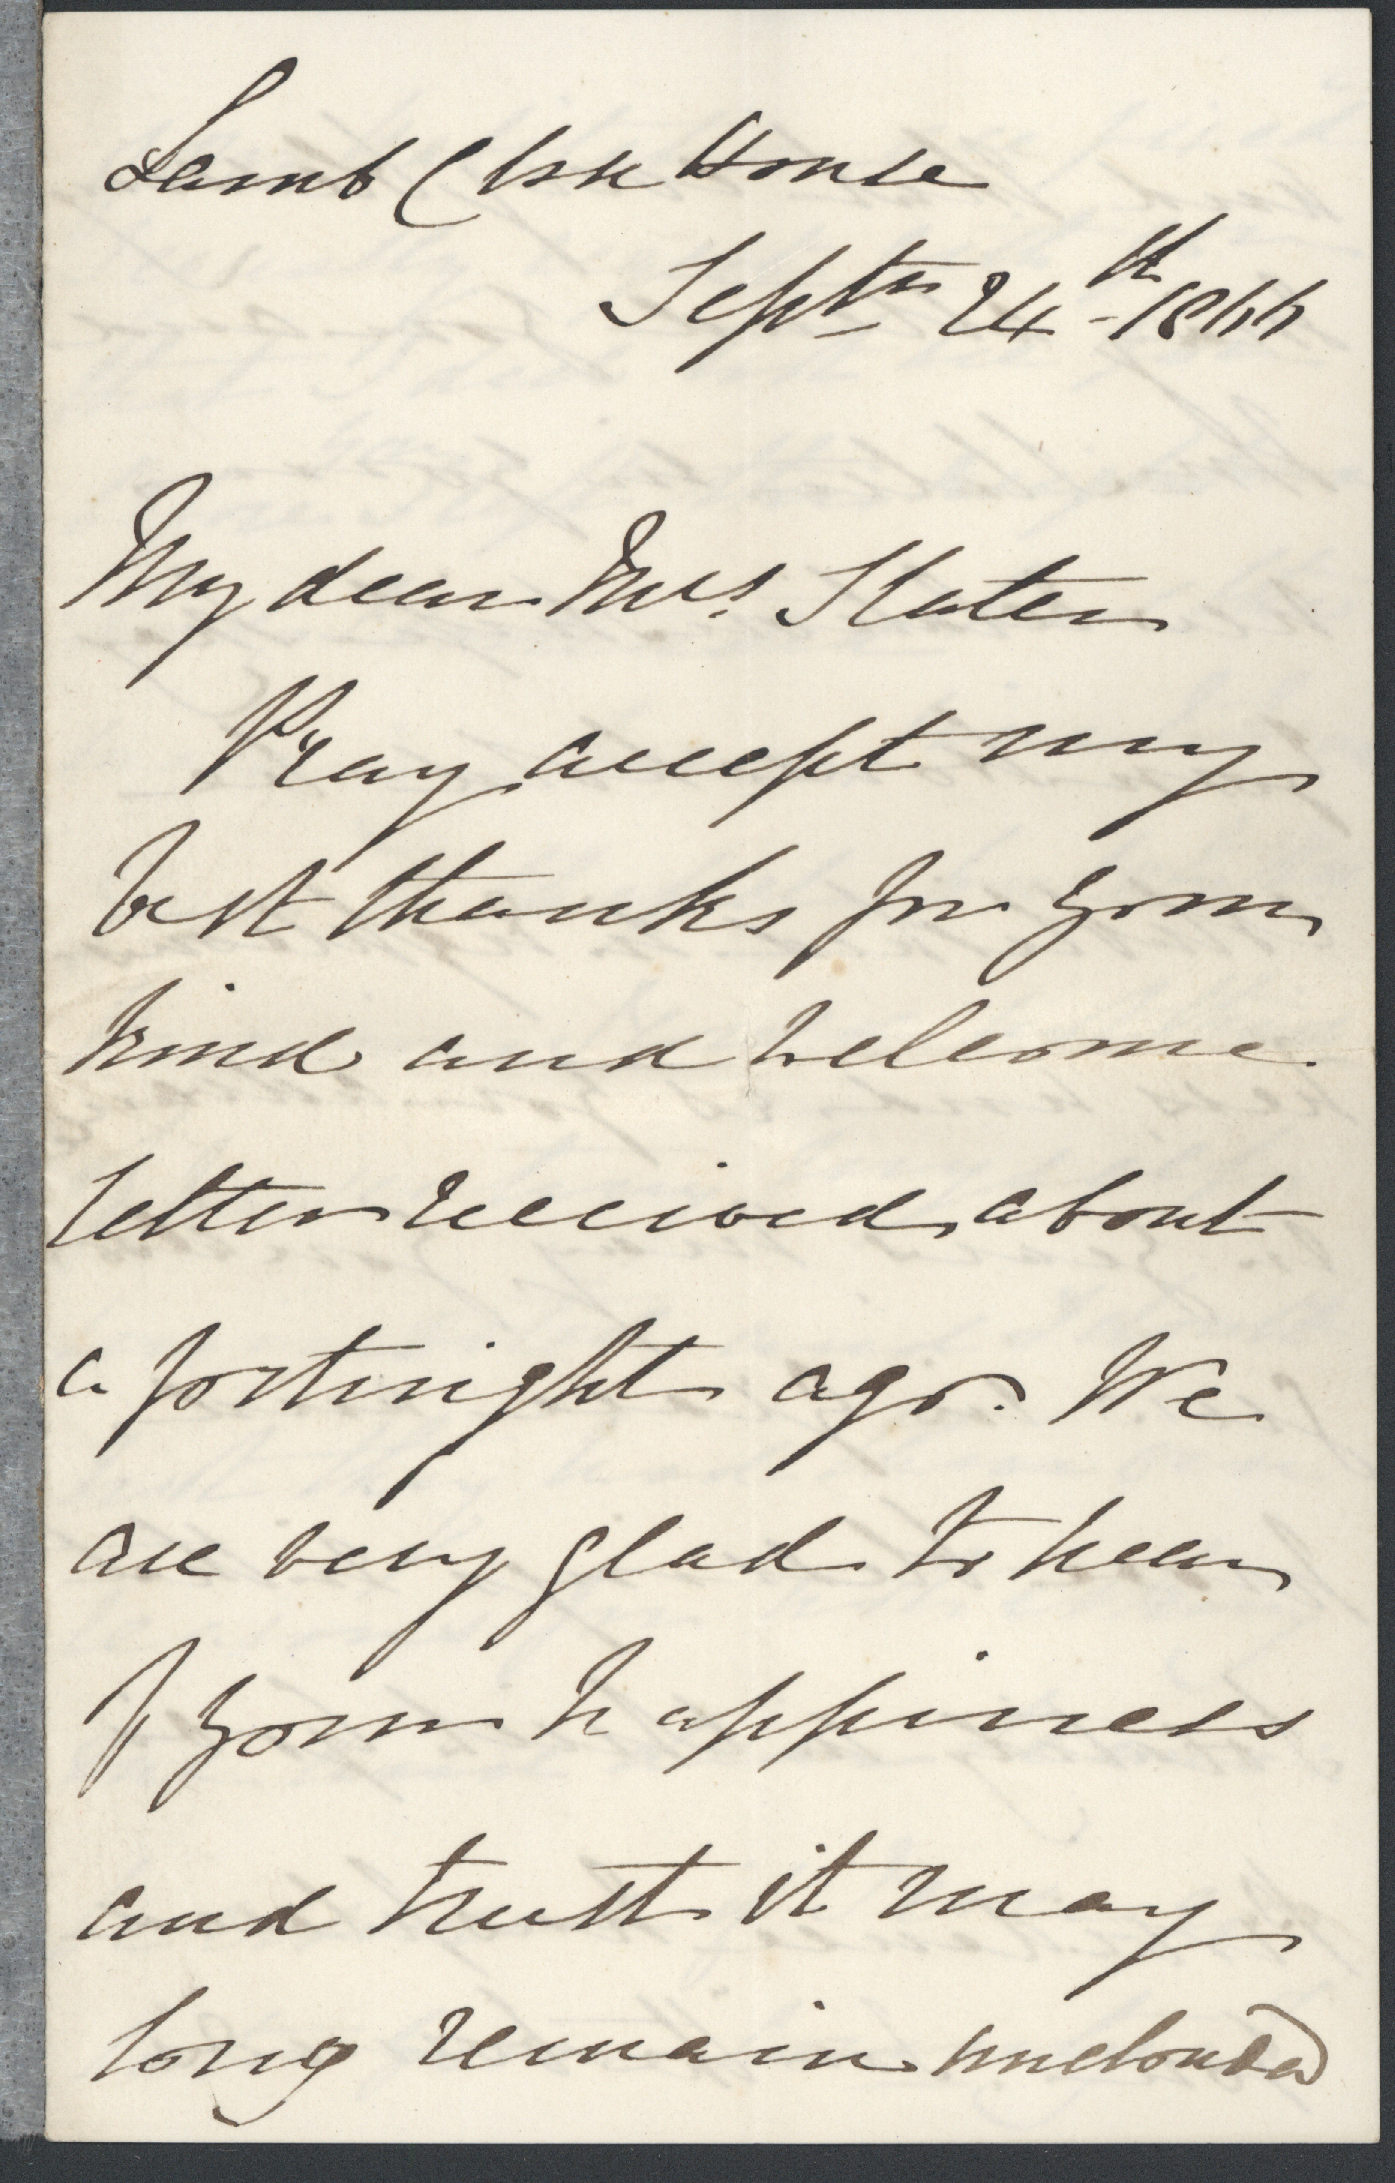 Lamb Close House
Septr 24th 1866
My dear Mrs. Slater
Pray accept my
best thanks for your
kind and welcome
letter received about
a fortnight ago. We
are very glad to hear
of your happiness
and trust it may
long remain unclouded